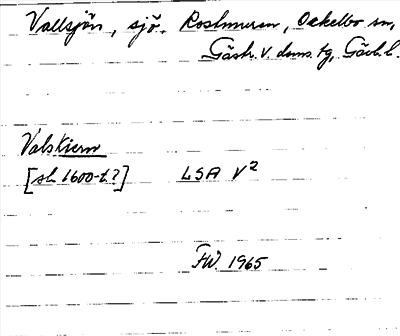 Vallsjön, sjö. Roshmuren, Ockelbo sn,
Gästr. V. doms. tg, Gävl. l.
Valskiern
[sl. 1600-t.?] LSA V²
FW. 1965